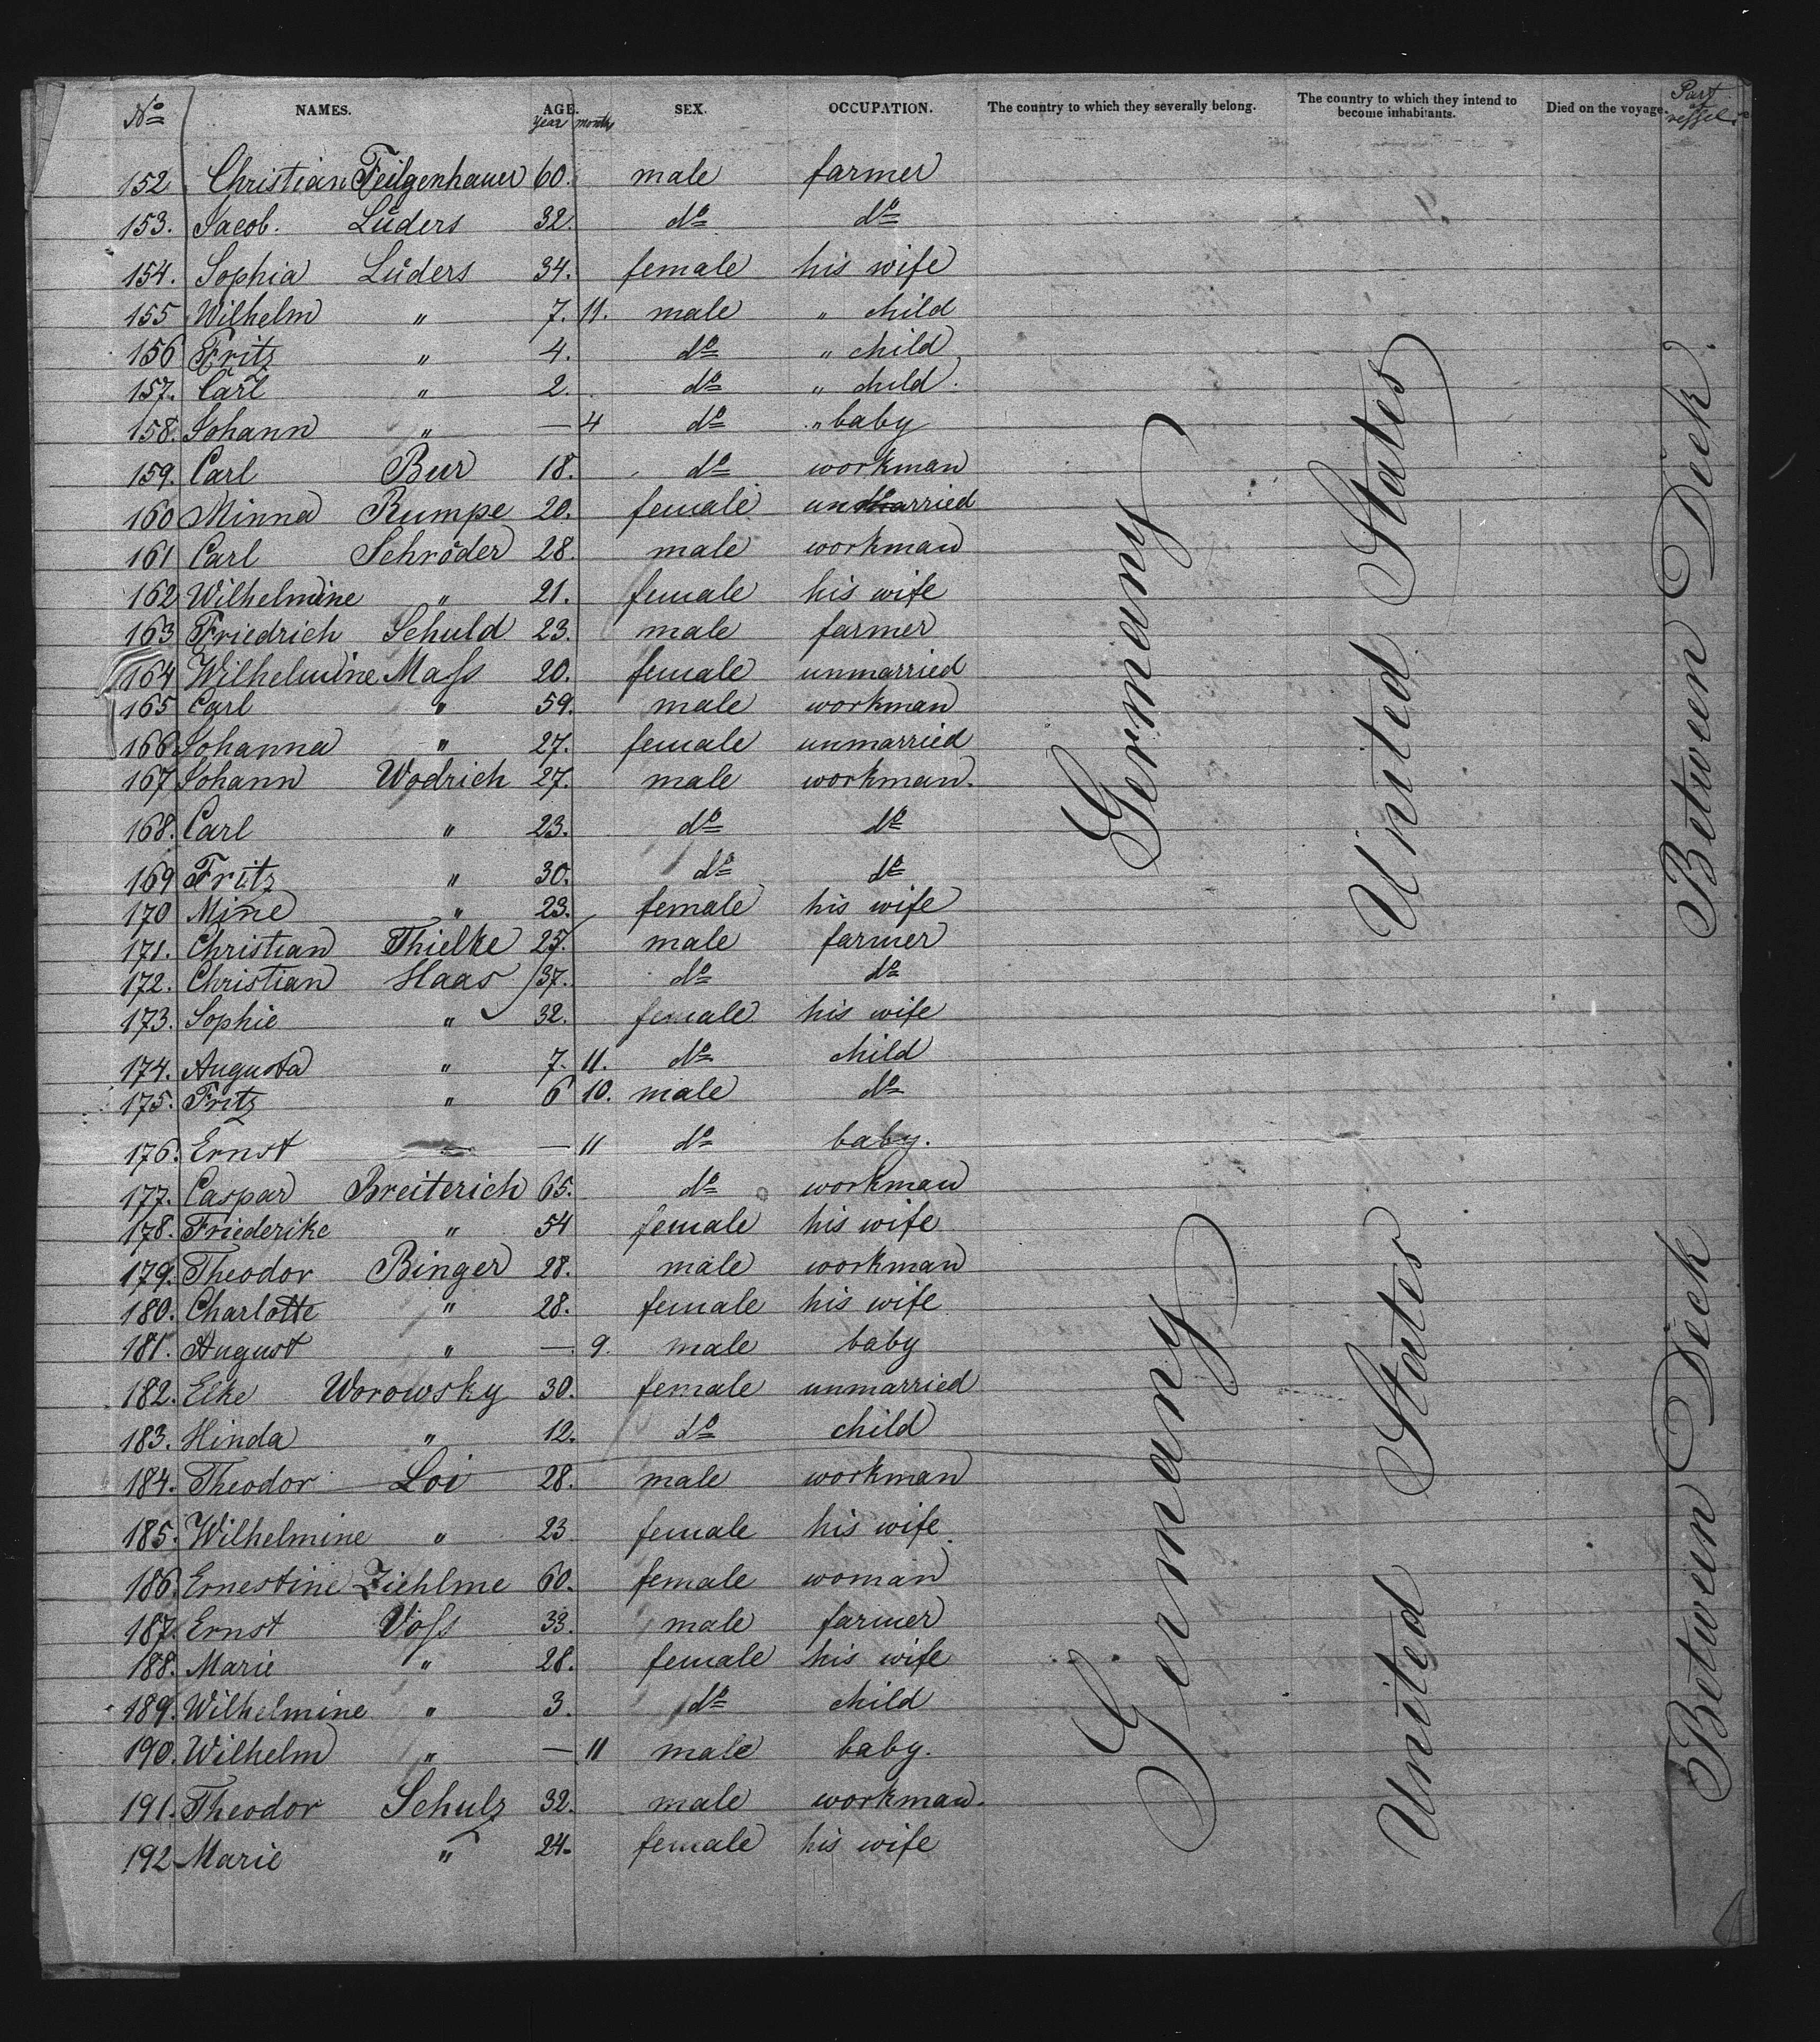 No NAMES. AGE. SEX. OCCUPATION. The country to which they severally belong. The country to which they intend to become inhabitants. Died on the voyage. Part of vessel.
year months
152 Christian Feilgenhauer 60. male farmer
153. Jacob. Lüders 32. do do
154. Sophia Lüders 34. female his wife
155 Wilhelm " 7. 11. male " child
156 Fritz " 4. do " child
157. Carl " 2. do " child.
158. Johann " — 4 do " baby
159. Carl Bur 18. do workman
160 Minna Rumpe 20. female unmarried
161 Carl Schröder 28. male workman
162 Wilhelmine " 21. female his wife
163 Friedrich Schuld 23. male farmer
164 Wilhelmine Maſs 20. female unmarried
165 Carl " 59. male workman
166 Johanna " 27. female unmarried
167 Johann Wodrich 27. male workman.
168. Carl " 23. do do
169 Fritz " 30. do do
170 Mine " 23. female his wife
171. Christian Thielke 25. male farmer
172. Christian Haas 37. do do
173. Sophie " 32. female his wife
174. Augusta " 7. 11. do child
175. Fritz " 6 10. male do
176. Ernst — 11 do baby.
177. Caspar Breiterich 65. do workman
178. Friederike " 54 female his wife
179. Theodor Binger 28. male workman
180. Charlotte " 28. female his wife
181. August " — 9. male baby
182. Elke Worowsky 30. female unmarried
183. Hinda " 12. do child
184. Theodor Loi 28. male workman
185. Wilhelmine " 23 female his wife
186. Ernestine Ziehlme 60. female woman
187. Ernst Voſs 33. male farmer
188. Marie " 28. female his wife
189. Wilhelmine " 3. do child
190. Wilhelm " — 11 male baby.
191. Theodor Schulz 32. male workman.
192 Marie " 24. female his wife
Germany
United States
Between Deck.
Germany
United States
Between Deck